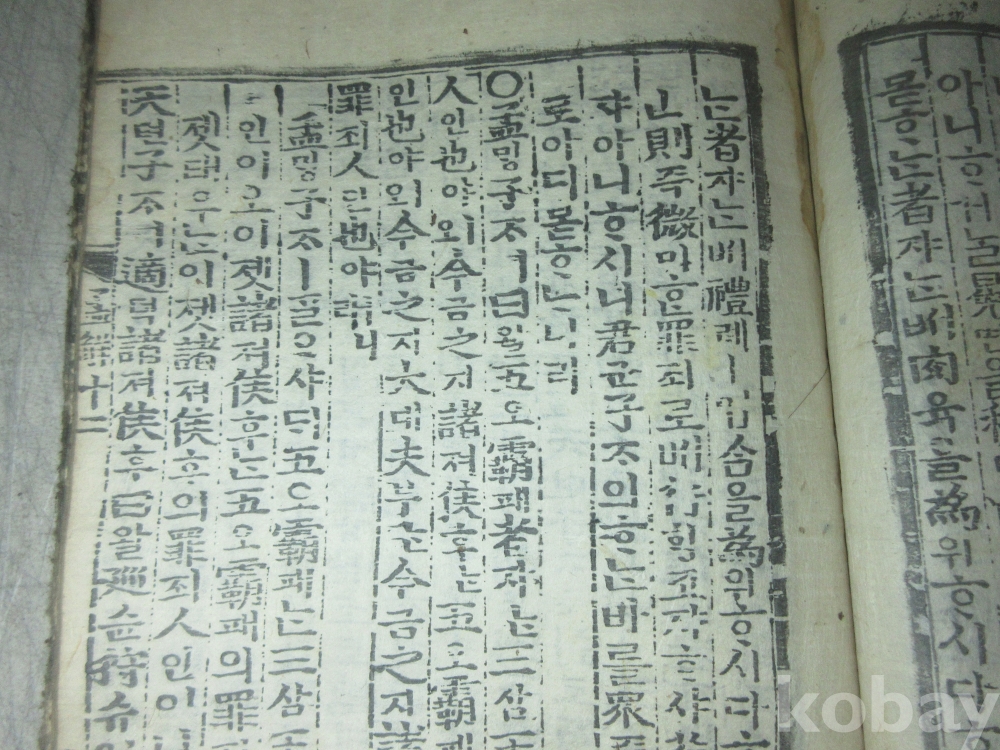 몯ᄒᆞᄂᆞᆫ者쟈ᄂᆞᆫᄡᅥ肉육을為위ᄒᆞ시다
ᄂᆞᆫ者쟈ᄂᆞᆫᄡᅥ禮례ㅣ업솜을為위ᄒᆞ시다ᄒᆞ
則즉微미ᄒᆞᆫ罪죄로ᄡᅥ行ᄒᆡᆼ코쟈ᄒᆞ샤
쟈아니ᄒᆞ시니君군子ᄌᆞ의ᄒᆞᄂᆞᆫ바ᄅᆞᆯ衆
로아디몯ᄒᆞᄂᆞ니라
○孟ᄆᆡᆼ子ᄌᆞㅣ曰왈五오霸패者쟈ᄂᆞᆫ三삼王
人인也야ㅣ오今금之지諸져侯후ᄂᆞᆫ五오霸패
人인也야ㅣ오今금之지大대夫부ᄂᆞᆫ今금之지諸
罪죄人인也야ㅣ니
孟ᄆᆡᆼ子ᄌᆞㅣᄀᆞᆯᄋᆞ샤ᄃᆡ五오霸패ᄂᆞᆫ三삼王
인이오이젯諸져侯후ᄂᆞᆫ五오霸패의罪
젯태우ᄂᆞᆫ이젯諸져侯후의罪죄人인이
天텬子ᄌᆞㅣ適뎍諸져侯후曰왈巡슌狩슈
孟解十二
kobay